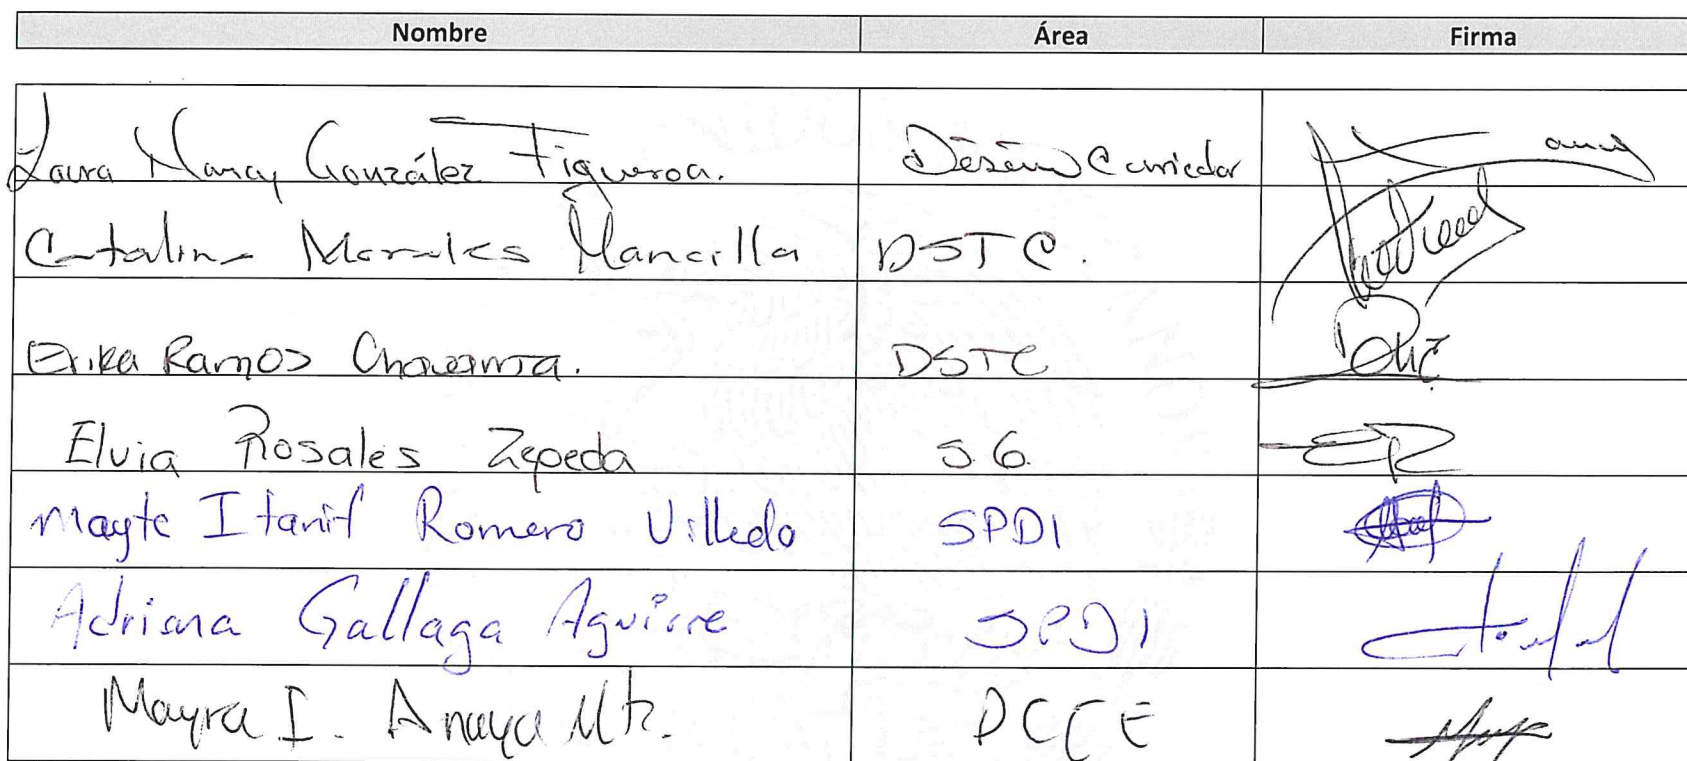 Nombre Área Firma
Laura Nancy González Figueroa.
Catalina Morales Mancilla DSTC.
Erika Ramos Chavarria. DSTC
Elvia Rosales Zepeda SG
Mayte Itanif Romero Villedo SPDI
Adriana Gallaga Aguirre SPDI
Mayra I. Anaya Mtz. DCCE